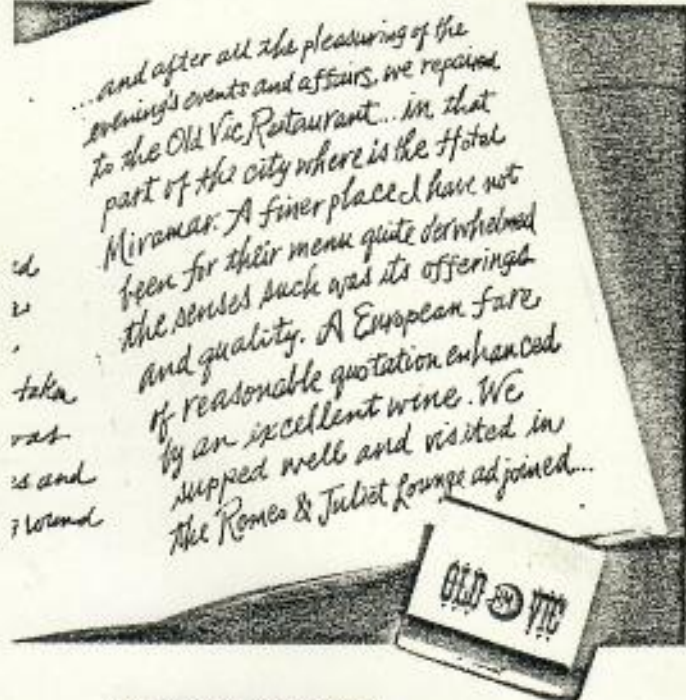 ...and after all the pleasuring of the
evening's events and affairs, we repaired
to the Old Vic Restaurant... in that
part of the city where is the Hotel
Miramar. A finer place I have not
been for their menu quite overwhelmed
the senses such was its offerings
and quality. A European fare
of reasonable quotation enhanced
by an excellent wine. We
supped well and visited in
the Romeo & Juliet Lounge adjoined...
taken
was
s and
wound
OLD VIC